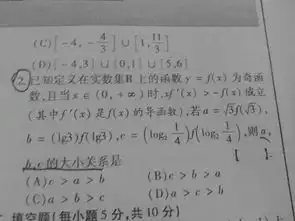 (C) [-4, -4/3] ∪ [1, 11/3]
(D) [-4,3] ∪ [0,1] ∪ [5,6]
2. 已知定义在实数集R上的函数 y = f(x) 为奇
函数,且当 x ∈ (0, +∞) 时, xf′(x) > -f(x) 成立
(其中 f′(x) 是 f(x) 的导函数),若 a = √3f(√3),
b = (lg3)f(lg3), c = (log₂ 1/4)f(log₂ 1/4),则 a,
b,c 的大小关系是 【 】
(A) c > a > b (B) c > b > a
(C) a > b > c (D) a > c > b
填空题(每小题5分,共10分)